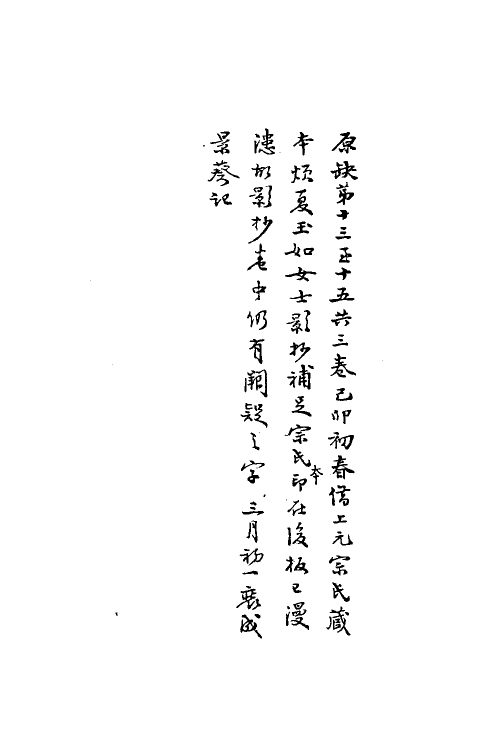 原缺第十三至十五共三卷己卯初春借上元宗氏藏
本煩夏玉如女士影抄補足宗氏本印在後板已漫
漶故影抄卷中仍有闕疑之字三月初一裝成
景葵記